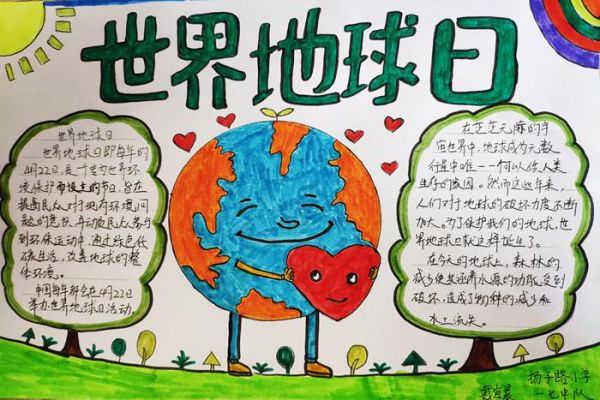 世界地球日
世界地球日
世界地球日即每年的
4月22日,是一个专为世界环
境保护而设立的节日,旨在
提高民众对于现有环境问
题的意识,并动员民众参与
到环保运动中,通过绿色低
碳生活,改善地球的整
体环境。
中国每年都会在4月22日
举办世界地球日活动。
在芝芝无 的宇
宙世界中,地球成为无数
行星中唯一一个可以供人类
生存的家园。然而这些年来,
人们对于地球的破坏力度不断
加大。为了保护我们的地球,世
界地球日就这样诞生了。
在今天的地球上,森林的
减少使其涵养水源的功能受到
破坏,造成了物种的减少和
水土流失。
扬子路小学
戴宜晨
一七中队